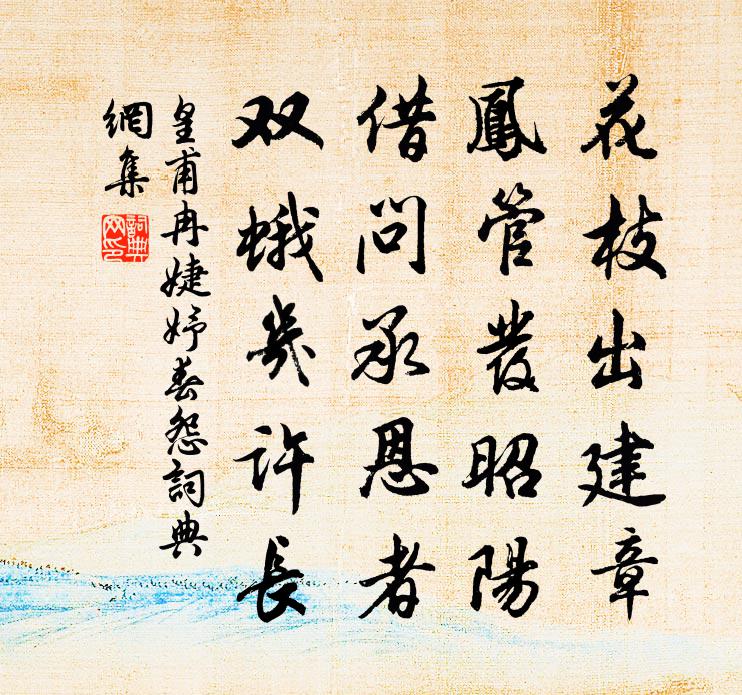 花枝出建章
鳳管發昭陽
借问承恩者
双蛾幾许長
皇甫冉婕妤春怨詞典
網集
詞典網印